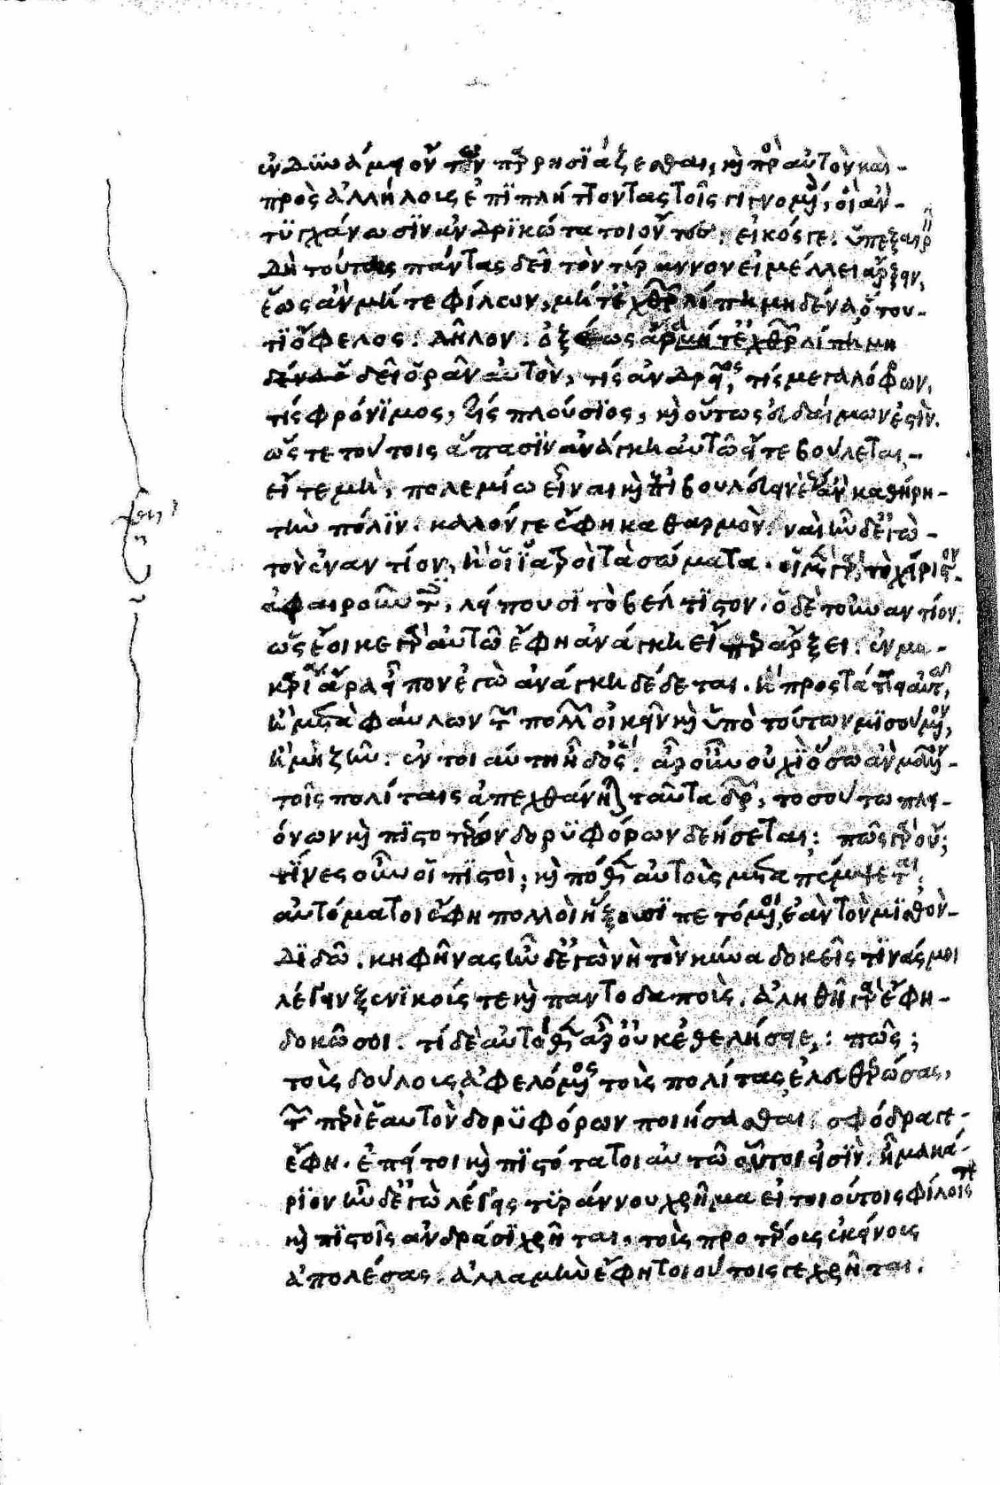 ἐν δυνάμει ὄντων παρρησιάζεσθαι, καὶ πρὸς αὐτὸν καὶ
πρὸς ἀλλήλοις ἐπιπλήττοντας τοῖς γιγνομένοις, οἳ ἂν
τυγχάνωσιν ἀνδρικώτατοι ὄντες; εἰκός γε. ὑπεξαιρεῖν
δὴ τούτους πάντας δεῖ τὸν τύραννον εἰ μέλλει ἄρξειν,
ἕως ἂν μήτε φίλων, μήτ' ἐχθρῶν λίπῃ μηδένα, ὅτου
τι ὄφελος. δῆλον. ὀξέως ἄρα
δεῖ ὁρᾶν αὐτὸν, τίς ἀνδρεῖος, τίς μεγαλόφρων,
τίς φρόνιμος, τίς πλούσιος, καὶ οὕτως εὐδαίμων ἐστὶν.
ὥστε τούτοις ἅπασιν ἀνάγκη αὐτῷ εἴτε βούλεται,
εἴτε μὴ, πολεμίῳ εἶναι καὶ ἐπιβουλεύειν ἕως ἂν καθήρῃ
τὴν πόλιν. καλόν γε ἔφη καθαρμὸν. ναὶ ἦν δ' ἐγὼ
τὸν ἐναντίον, ἢ οἱ ἰατροὶ τὰ σώματα. οἱ μὲν γὰρ, τὸ χείριστον
ἀφαιροῦντες, λείπουσι τὸ βέλτιστον. ὁ δὲ τοὐναντίον.
ὡς ἔοικε γὰρ αὐτῷ ἔφη ἀνάγκη εἴπερ ἄρξει. ἐν μα
καρίᾳ ἄρα εἶπον ἐγὼ ἀνάγκῃ δέδεται. ἣ προστάττει αὐτῷ,
ἢ μετὰ φαύλων τῶν πολλῶν οἰκεῖν καὶ ὑπὸ τούτων μισούμενον,
ἢ μὴ ζῆν. ἐν τοιαύτῃ ἦ δ' ὅς. ἆρ' οὖν οὐχὶ ὅσῳ ἂν μᾶλλον
τοῖς πολίταις ἀπεχθάνηται ταῦτα δρῶν, τοσούτῳ πλει
όνων καὶ πιστοτέρων δορυφόρων δεήσεται; πῶς γὰρ οὔ;
τίνες οὖν οἱ πιστοὶ; καὶ πόθεν αὐτοὺς μεταπέμψεται;
αὐτόματοι ἔφη πολλοὶ ἥξουσι πετόμενοι, ἐὰν τὸν μισθὸν
διδῷ. κηφῆνας ἦν δ' ἐγὼ νὴ τὸν κύνα δοκεῖς τινάς μοι
λέγειν ξενικούς τε καὶ παντοδαποὺς. ἀληθῆ γὰρ ἔφη
δοκῶ σοι. τί δὲ αὐτόθεν ἆρ' οὐκ ἐθελήσειεν; πῶς;
τοὺς δούλους ἀφελόμενος τοὺς πολίτας, ἐλευθερώσας,
τῶν περὶ ἑαυτὸν δορυφόρων ποιήσασθαι; σφόδρα γε
ἔφη. ἐπεί τοι καὶ πιστότατοι αὐτῷ οὗτοί εἰσιν. ἦ μακά
ριον ἦν δ' ἐγὼ λέγεις τυράννου χρῆμα εἰ τοιούτοις φίλοις τε
καὶ πιστοῖς ἀνδράσι χρῆται, τοὺς προτέρους ἐκείνους
ἀπολέσας. ἀλλὰ μὴν ἔφη τοιούτοις γε χρῆται.